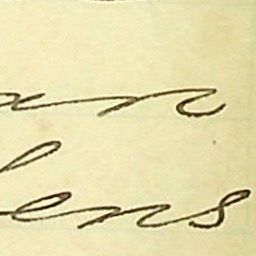 an
lens